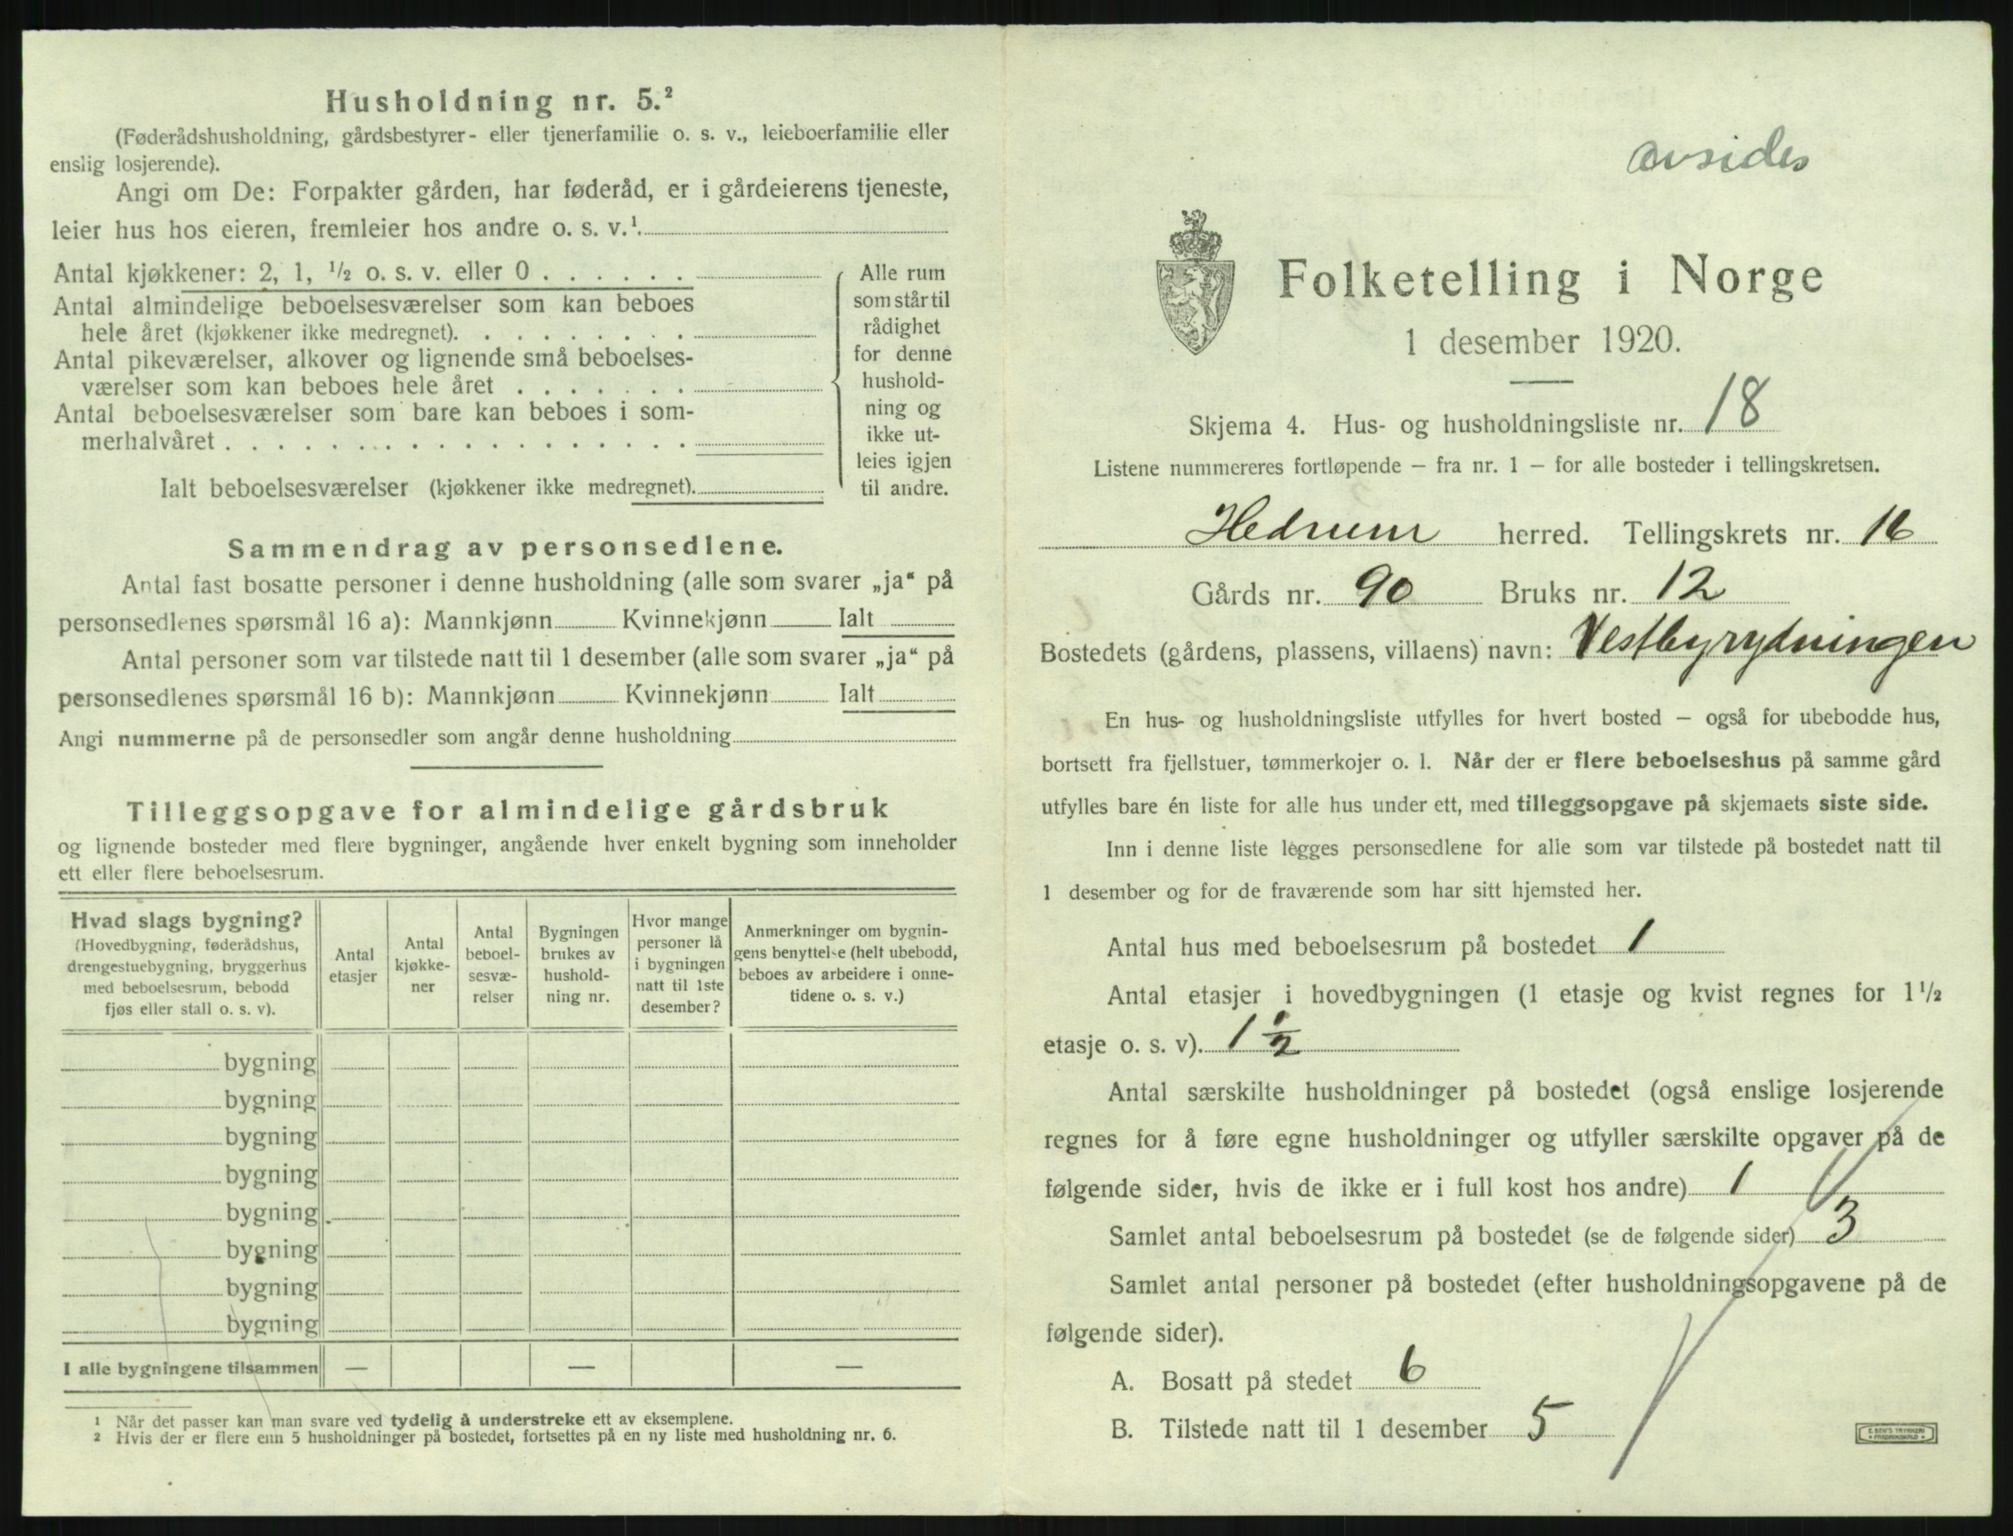 Husholdning nr. 5.²
(Føderådshusholdning, gårdsbestyrer- eller tjenerfamilie o. s. v., leieboerfamilie eller
enslig losjerende).
Angi om De: Forpakter gården, har føderåd, er i gårdeierens tjeneste,
leier hus hos eieren, fremleier hos andre o. s. v.¹
Antal kjøkkener: 2, 1, ½ o. s. v. eller 0 . . . . . .
Antal almindelige beboelsesværelser som kan beboes
hele året (kjøkkener ikke medregnet). . . . . . . . .
Antal pikeværelser, alkover og lignende små beboelses-
værelser som kan beboes hele året . . . . . . .
Antal beboelsesværelser som bare kan beboes i som-
merhalvåret . . . . . . . . . . . . . . . . . .
Ialt beboelsesværelser (kjøkkener ikke medregnet).
Alle rum
som står til
rådighet
for denne
hushold-
ning og
ikke ut-
leies igjen
til andre.
Sammendrag av personsedlene.
Antal fast bosatte personer i denne husholdning (alle som svarer „ja“ på
personsedlenes spørsmål 16 a): Mannkjønn Kvinnekjønn Ialt
Antal personer som var tilstede natt til 1 desember (alle som svarer „ja“ på
personsedlenes spørsmål 16 b): Mannkjønn Kvinnekjønn Ialt
Angi nummerne på de personsedler som angår denne husholdning
Tilleggsopgave for almindelige gårdsbruk
og lignende bosteder med flere bygninger, angående hver enkelt bygning som inneholder
ett eller flere beboelsesrum.
Hvad slags bygning?
(Hovedbygning, føderådshus,
drengestuebygning, bryggerhus
med beboelsesrum, bebodd
fjøs eller stall o. s. v).
Antal
etasjer
Antal
kjøkke-
ner
Antal
beboel-
sesvæ-
relser
Bygningen
brukes av
hushold-
ning nr.
Hvor mange
personer lå
i bygningen
natt til 1ste
desember?
Anmerkninger om bygnin-
gens benyttelse (helt ubebodd,
beboes av arbeidere i onne-
tidene o. s. v.)
bygning
bygning
bygning
bygning
bygning
bygning
bygning
bygning
I alle bygningene tilsammen — — —
¹ Når det passer kan man svare ved tydelig å understreke ett av eksemplene.
² Hvis der er flere enn 5 husholdninger på bostedet, fortsettes på en ny liste med husholdning nr. 6.
avsides
Folketelling i Norge
1 desember 1920.
Skjema 4. Hus- og husholdningsliste nr. 18
Listene nummereres fortløpende – fra nr. 1 – for alle bosteder i tellingskretsen.
Hedrum herred. Tellingskrets nr. 16
Gårds nr. 90 Bruks nr. 12
Bostedets (gårdens, plassens, villaens) navn: Vestbyrydningen
En hus- og husholdningsliste utfylles for hvert bosted – også for ubebodde hus,
bortsett fra fjellstuer, tømmerkojer o. l. Når der er flere beboelseshus på samme gård
utfylles bare én liste for alle hus under ett, med tilleggsopgave på skjemaets siste side.
Inn i denne liste legges personsedlene for alle som var tilstede på bostedet natt til
1 desember og for de fraværende som har sitt hjemsted her.
Antal hus med beboelsesrum på bostedet 1
Antal etasjer i hovedbygningen (1 etasje og kvist regnes for 1½
etasje o. s. v). 1½
Antal særskilte husholdninger på bostedet (også enslige losjerende
regnes for å føre egne husholdninger og utfyller særskilte opgaver på de
følgende sider, hvis de ikke er i full kost hos andre) 1
Samlet antal beboelsesrum på bostedet (se de følgende sider) 3
Samlet antal personer på bostedet (efter husholdningsopgavene på de
følgende sider).
A. Bosatt på stedet 6
B. Tilstede natt til 1 desember 5